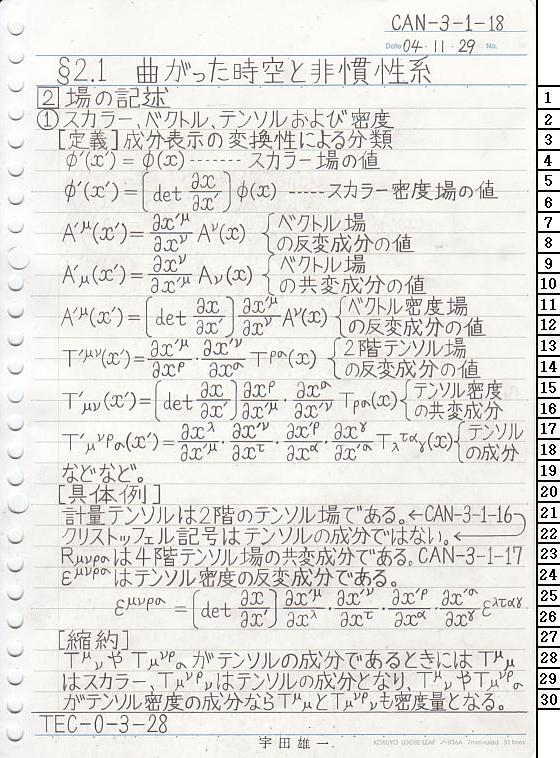 CAN-3-1-18
Date 04・11・29 No.
§2.1 曲がった時空と非慣性系
2 場の記述
① スカラー、ベクトル、テンソルおよび密度
[定義]成分表示の変換性による分類
φ'(x') = φ(x) ------- スカラー場の値
φ'(x') = [det ∂x/∂x'] φ(x) -----スカラー密度場の値
A'^μ(x') = ∂x'^μ/∂x^ν A^ν(x) {ベクトル場の反変成分の値
A'_μ(x') = ∂x^ν/∂x'^μ A_ν(x) {ベクトル場の共変成分の値
A'^μ(x') = [det ∂x/∂x'] ∂x'^μ/∂x^ν A^ν(x) {ベクトル密度場の反変成分の値
T'^μν(x') = ∂x'^μ/∂x^ρ・∂x'^ν/∂x^σ T^ρσ(x) {2階テンソル場の反変成分の値
T'_μν(x') = [det ∂x/∂x'] ∂x^ρ/∂x'^μ・∂x^σ/∂x'^ν T_ρσ(x) {テンソル密度の共変成分
T'_μ^νρ_σ(x') = ∂x^λ/∂x'^μ・∂x'^ν/∂x^τ・∂x'^ρ/∂x^α・∂x^γ/∂x'^σ T_λ^τα_γ(x) {テンソルの成分
などなど。
[具体例]
計量テンソルは2階のテンソル場である。←CAN-3-1-16
クリストッフェル記号はテンソルの成分ではない。←
R_μνρσは4階テンソル場の共変成分である。CAN-3-1-17
ε^μνρσはテンソル密度の反変成分である。
ε^μνρσ = [det ∂x/∂x'] ∂x'^μ/∂x^λ・∂x'^ν/∂x^τ・∂x'^ρ/∂x^α・∂x'^σ/∂x^γ ε^λταγ
[縮約]
T^μ_νやT_μ^νρ_σがテンソルの成分であるときにはT^μ_μ
はスカラー、T_μ^νρ_νはテンソルの成分となり、T^μ_νやT_μ^νρ_σ
がテンソル密度の成分ならT^μ_μとT_μ^νρ_νも密度量となる。
TEC-0-3-28
宇田雄一
KOKUYO LOOSE-LEAF ノ-836A 7mm ruled 31 lines
1
2
3
4
5
6
7
8
9
10
11
12
13
14
15
16
17
18
19
20
21
22
23
24
25
26
27
28
29
30